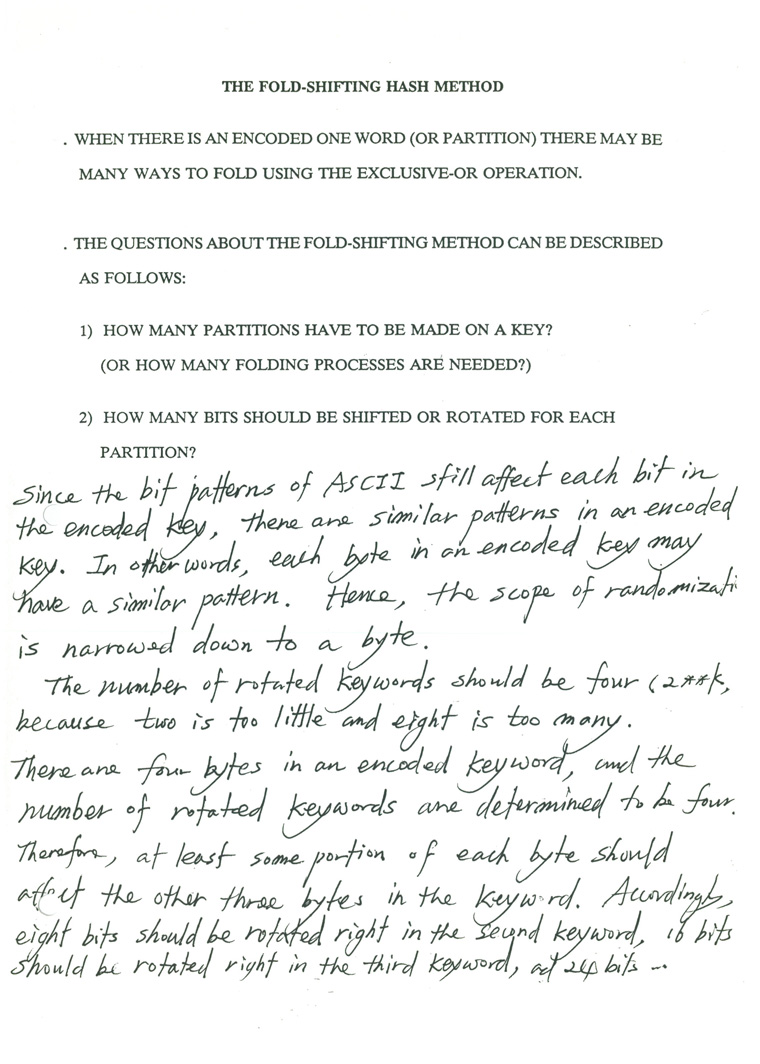 THE FOLD-SHIFTING HASH METHOD
. WHEN THERE IS AN ENCODED ONE WORD (OR PARTITION) THERE MAY BE
MANY WAYS TO FOLD USING THE EXCLUSIVE-OR OPERATION.
. THE QUESTIONS ABOUT THE FOLD-SHIFTING METHOD CAN BE DESCRIBED
AS FOLLOWS:
1) HOW MANY PARTITIONS HAVE TO BE MADE ON A KEY?
(OR HOW MANY FOLDING PROCESSES ARE NEEDED?)
2) HOW MANY BITS SHOULD BE SHIFTED OR ROTATED FOR EACH
PARTITION?
Since the bit patterns of ASCII still affect each bit in
the encoded key, there are similar patterns in an encoded
key. In other words, each byte in an encoded key may
have a similar pattern. Hence, the scope of randomizati
is narrowed down to a byte.
The number of rotated keywords should be four (2**k,
because two is too little and eight is too many.
There are four bytes in an encoded keyword, and the
number of rotated keywords are determined to be four.
Therefore, at least some portion of each byte should
affect the other three bytes in the keyword. Accordingly,
eight bits should be rotated right in the second keyword, 16 bits
should be rotated right in the third keyword, ad 24 bits ...